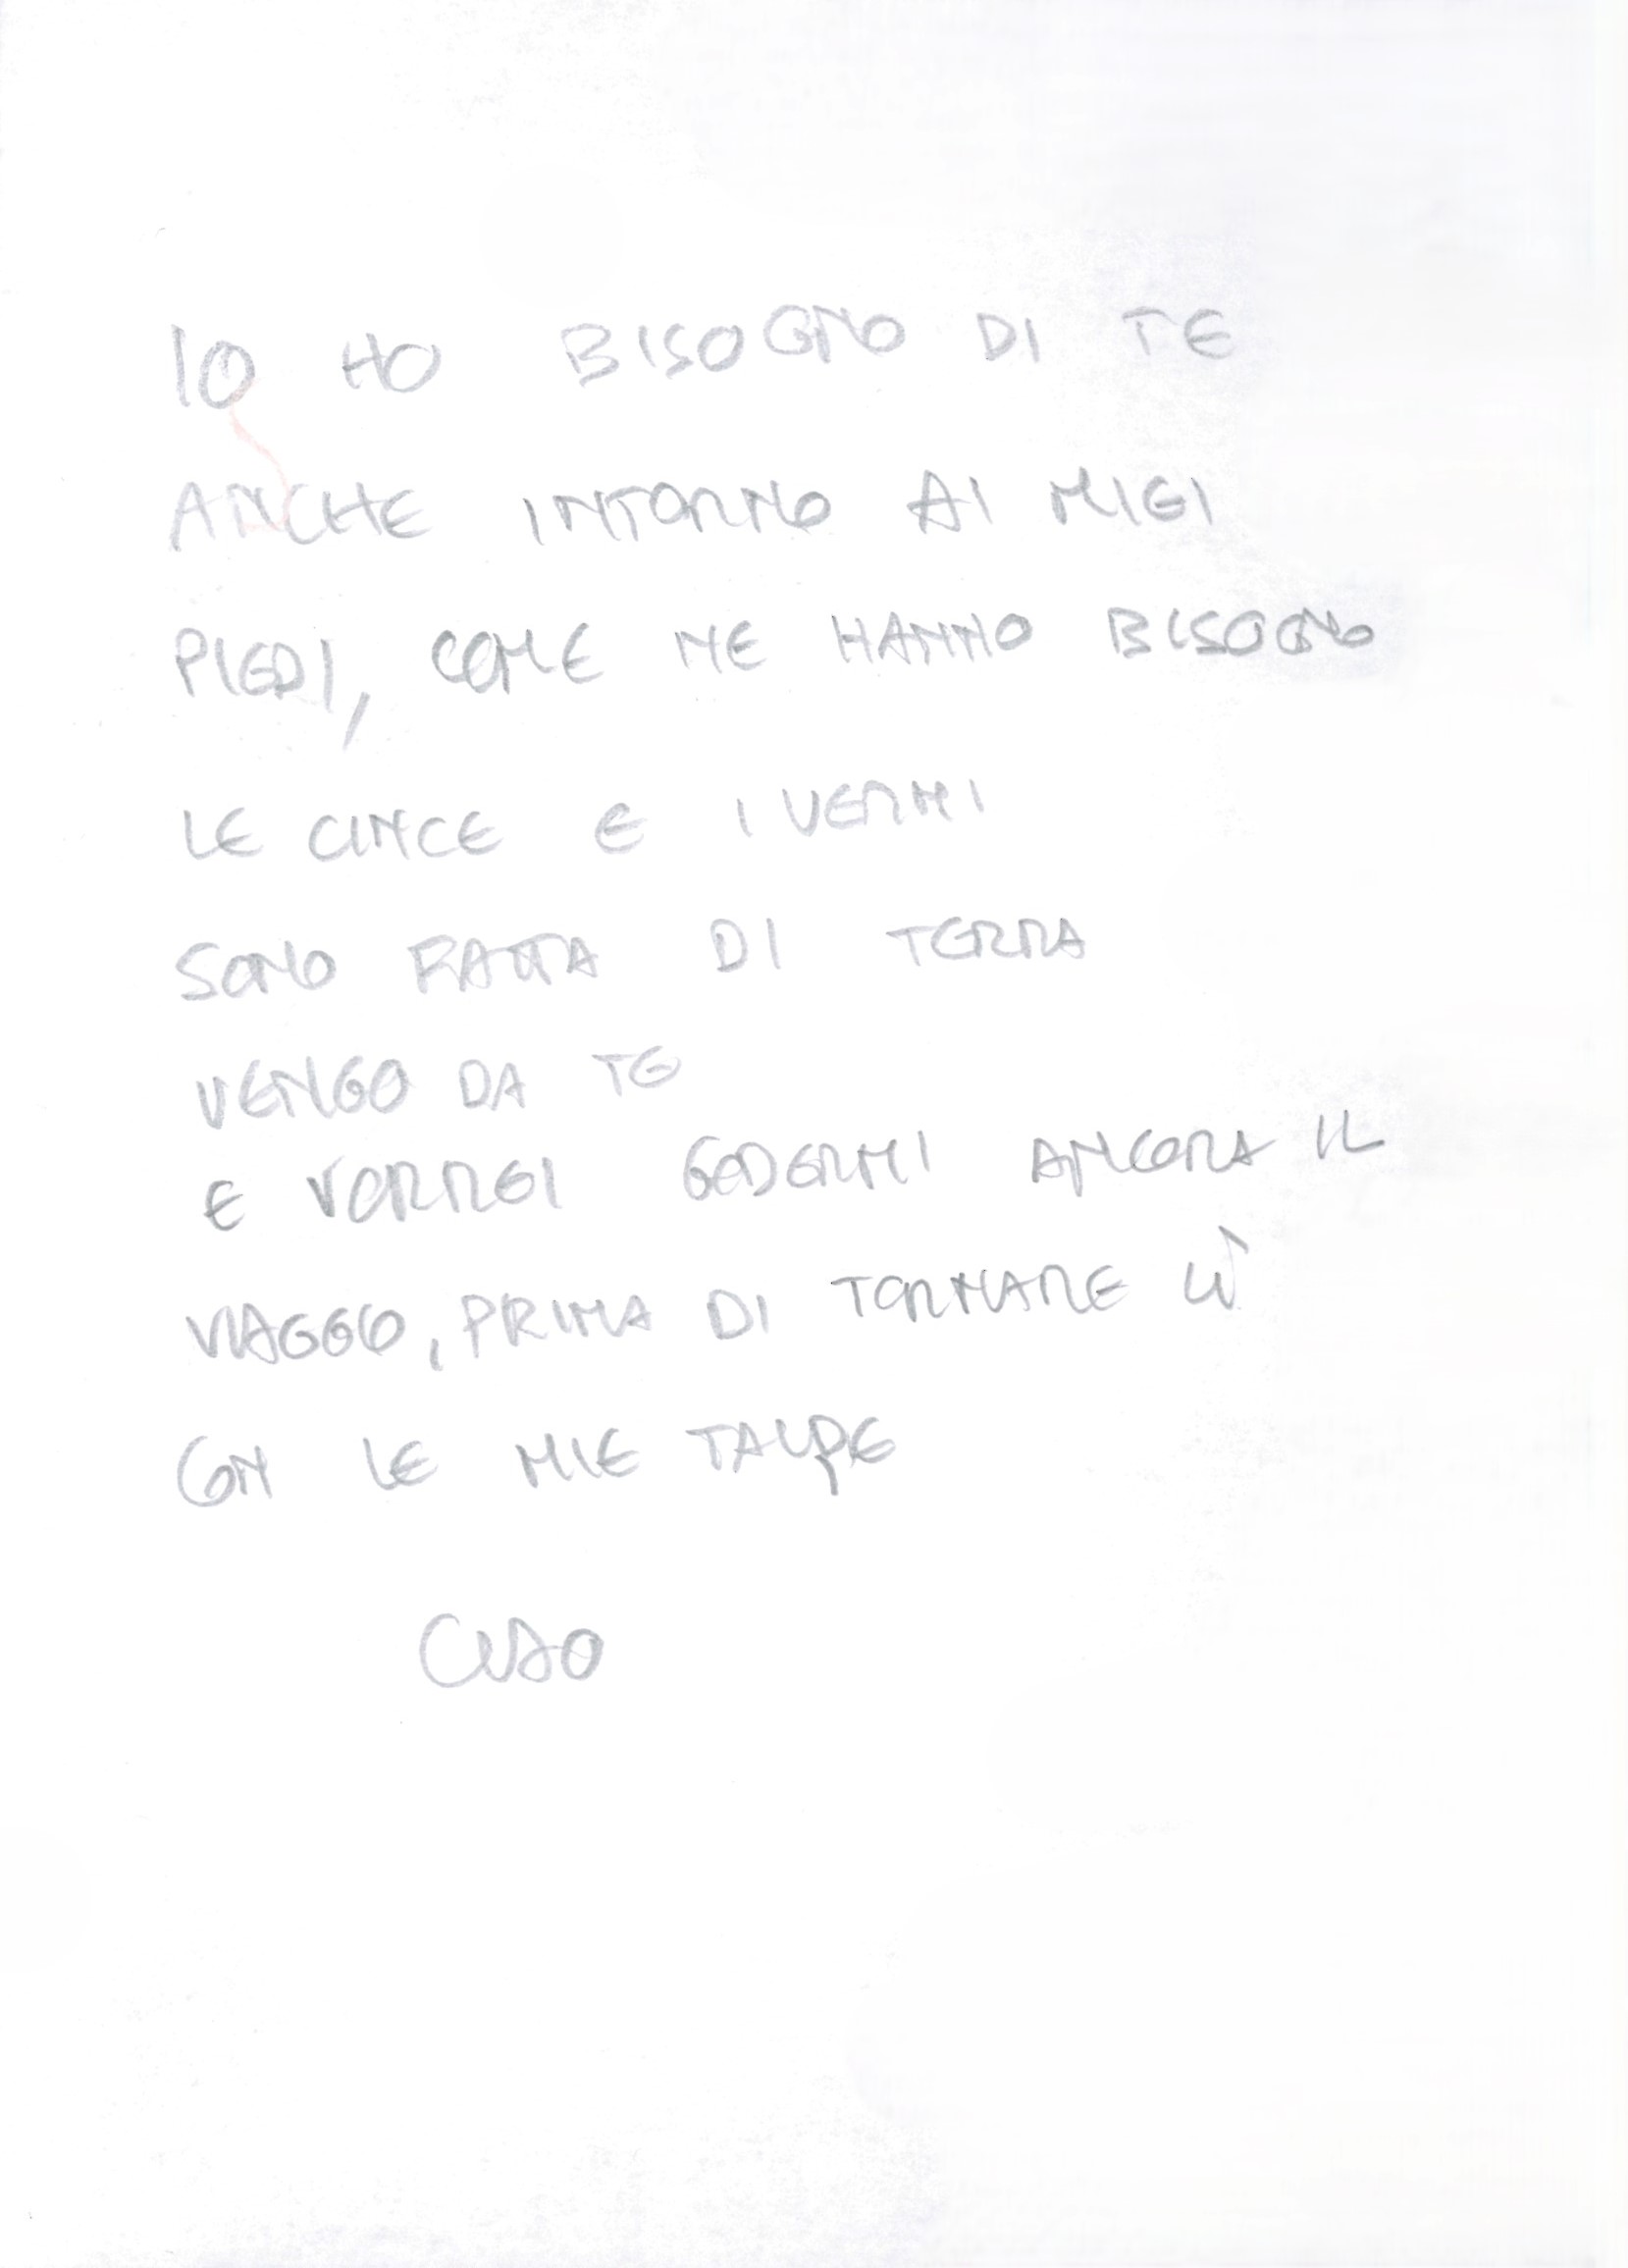 IO HO BISOGNO DI TE
ANCHE INTORNO AI MIEI
PIEDI, COME NE HANNO BISOGNO
LE CINCE E I VERMI
SONO FATTA DI TERRA
VENGO DA TE
E VORREI GODERMI ANCORA IL
VIAGGIO, PRIMA DI TORNARE LÌ
CON LE MIE TALPE
CIAO